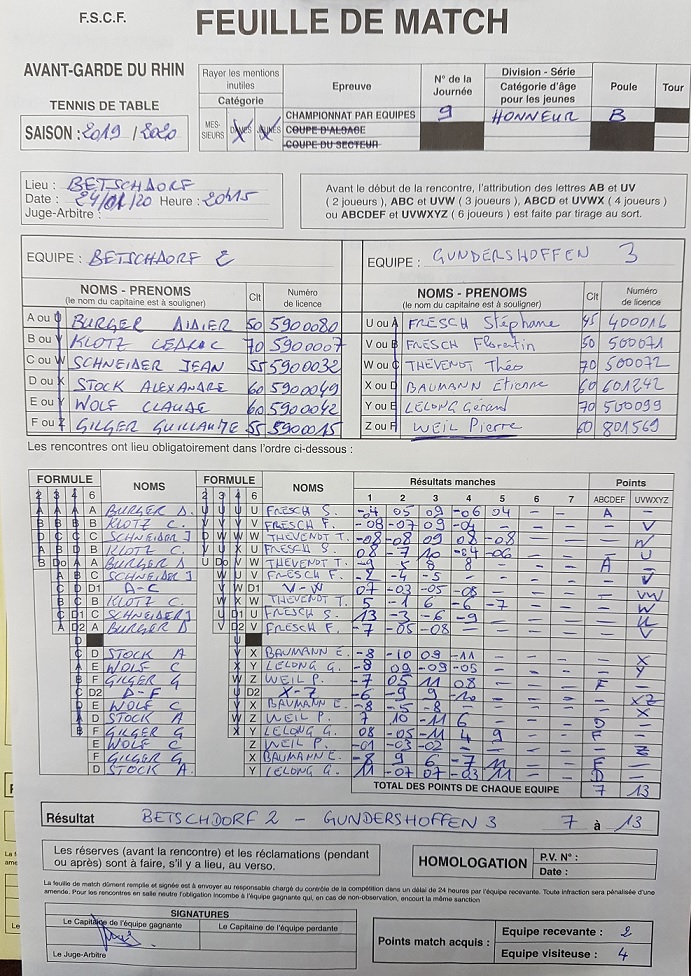 F.S.C.F.
FEUILLE DE MATCH
AVANT-GARDE DU RHIN
TENNIS DE TABLE
SAISON : 2019 / 2020
Rayer les mentions inutiles
Catégorie
MES-SIEURS DAMES JEUNES
Epreuve
CHAMPIONNAT PAR EQUIPES
COUPE D'ALSACE
COUPE DU SECTEUR
N° de la Journée
9
Division - Série
Catégorie d'âge pour les jeunes
HONNEUR
Poule
B
Tour
Lieu : BETSCHDORF
Date : 24/01/20 Heure : 20H15
Juge-Arbitre :
Avant le début de la rencontre, l'attribution des lettres AB et UV
( 2 joueurs ), ABC et UVW ( 3 joueurs ), ABCD et UVWX ( 4 joueurs )
ou ABCDEF et UVWXYZ ( 6 joueurs ) est faite par tirage au sort.
EQUIPE : BETSCHDORF 2
NOMS - PRENOMS Clt Numéro de licence
(le nom du capitaine est à souligner)
A ou U BURGER DIDIER 50 5900080
B ou V KLOTZ CEDRIC 70 5900007
C ou W SCHNEIDER JEAN 55 5900032
D ou X STOCK ALEXANDRE 60 5900049
E ou Y WOLF CLAUDE 60 5900042
F ou Z GILGER GUILLAUME 55 5900015
EQUIPE : GUNDERSHOFFEN 3
NOMS - PRENOMS Clt Numéro de licence
(le nom du capitaine est à souligner)
U ou A FRESCH Stéphane 45 400016
V ou B FRESCH Florentin 50 500071
W ou C THEVENOT Théo 70 500072
X ou D BAUMANN Etienne 60 601242
Y ou E LELONG Gérard 70 500099
Z ou F WEIL Pierre 60 801569
Les rencontres ont lieu obligatoirement dans l'ordre ci-dessous :
FORMULE NOMS FORMULE NOMS Résultats manches Points
2 3 4 6 2 3 4 6 1 2 3 4 5 6 7 ABCDEF UVWXYZ
A BURGER D. U FRESCH S. -4 05 09 -06 04 - - A -
B KLOTZ C. V FRESCH F. -08 -07 09 -04 - - - - V
C SCHNEIDER J W THEVENOT T. -08 -08 09 08 -08 - - - W
B KLOTZ C. U FRESCH S. 08 -7 10 -04 -06 - - - U
A W THEVENOT T. -9 5 8 8 - - - A -
C SCHNEIDER J V FRESCH F. -2 -4 -5 - - - - - V
D1 A-C D1 V-W 07 -03 -05 -08 - - - - VW
B KLOTZ C W THEVENOT T. 5 -1 6 -6 -7 - - - W
C SCHNEIDER J U FRESCH S. 13 -3 -6 -9 - - - - U
A BURGER D V FRESCH F. -7 -05 -08 - - - - - V
D STOCK A X BAUMANN E. -8 -10 09 -11 - - - - X
E WOLF C Y LELONG G. -8 09 -09 -05 - - - - Y
F GILGER G Z WEIL P. -7 05 11 08 - - - F -
D2 D-F D2 X-Z -6 -9 9 -10 - - - - XZ
E WOLF C X BAUMANN E. -8 -5 -8 - - - - - X
D STOCK A Z WEIL P. 7 10 -11 6 - - - D -
F GILGER G Y LELONG G. 08 -05 -11 4 9 - - F -
E WOLF C Z WEIL P. -01 -03 -02 - - - - - Z
F GILGER G X BAUMANN E. -8 9 6 -7 11 - - F -
D STOCK A. Y LELONG G. 11 -07 07 -03 11 - - D -
TOTAL DES POINTS DE CHAQUE EQUIPE 7 13
Résultat BETSCHDORF 2 - GUNDERSHOFFEN 3 7 à 13
Les réserves (avant la rencontre) et les réclamations (pendant
ou après) sont à faire, s'il y a lieu, au verso.
HOMOLOGATION
P.V. N° :
Date :
La feuille de match dûment remplie et signée est à envoyer au responsable chargé du contrôle de la compétition dans un délai de 24 heures par l'équipe recevante. Toute infraction sera pénalisée d'une
amende. Pour les rencontres en salle neutre l'obligation incombe à l'équipe gagnante qui, en cas de non-observation, encourt la même sanction
SIGNATURES
Le Capitaine de l'équipe gagnante
Le Capitaine de l'équipe perdante
Le Juge-Arbitre
Points match acquis :
Equipe recevante : 2
Equipe visiteuse : 4